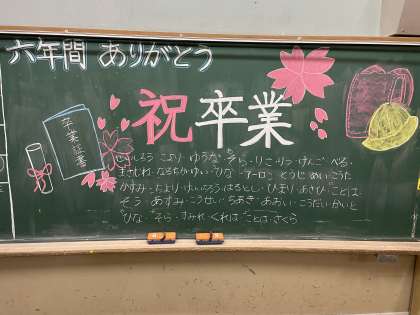 六年間 ありがとう
祝卒業
卒業証書
こより ゆうな そら・りこ りう けんご べる・
なるちかゆい・ひな アーロン とうじ めい こうた
かすみ・たより はるとし・ひまり あさひ ことは・
そう あすみ こうせい ちあき あおい こうだい かいと
ひな そら すみれ くれは ことは さくら